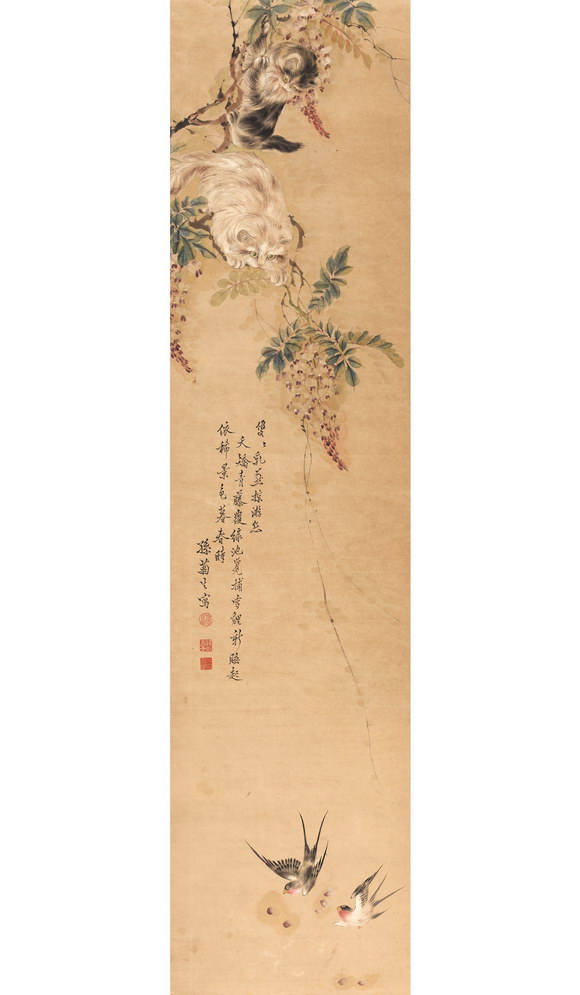 雙〻乳燕掠游絲
夭矯青藤覆綠池覓捕雪貍新睡起
依稀景色暮春時
孫菊生寫